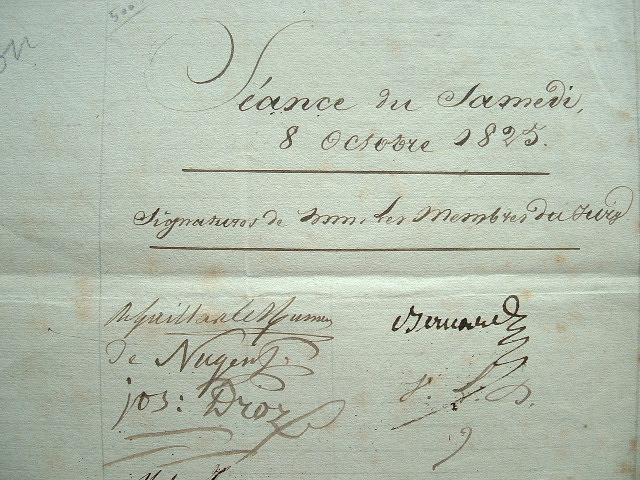 500
Séance du Samedi,
8 Octobre 1825.
Signatures de MM. les Membres du Jury
de Nugent.
jos: Droz
Bernard